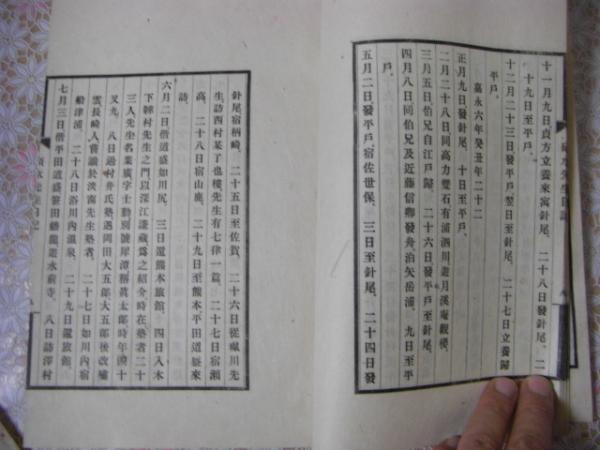 十一月九日貞方立養來寓針尾、二十八日發針尾、二
十九日至平戶、
十二月二十三日發平戶翌日至針尾、二十七日立養歸
平戶、
嘉永六年癸丑年二十二
正月九日發針尾、十日至平戶、
二月二十八日同高力雙石有浦酒川遊月溪庵觀櫻、
三月五日伯兄自江戶歸、二十六日發平戶至針尾、
四月八日同伯兄及近藤信卿發舟泊矢岳浦、九日至平
戶、
五月二日發平戶、宿佐世保、三日至針尾、二十四日發
針尾宿柄崎、二十五日至佐賀、二十六日從 川先
生訪西村某于也樓先生有七律一篇、二十七日宿瀨
高、二十八日宿山鹿、二十九日至熊本平田道 來
訪、
六月二日偕道盛如川尻、三日還熊本旅館、四日入木
下 村先生之門以深江謙藏爲之紹介時在塾者二十
三人先生名業廣字士勤別號犀潭稱眞太郎時年四十
又九、八日過村井氏塾遇岡田大五郎大五郎後改 
雲長崎人嘗讀於淡南先生塾者、二十七日如川內宿
船津浦、二十八日浴川內溫泉、二十九日還旅館、
七月三日偕平田道盛 田 龍遊水前寺、八日訪澤村
碩水先生日記